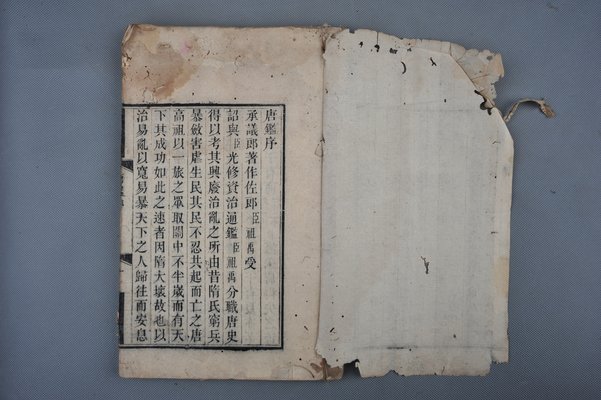 唐鑑序
承議郎著作佐郎臣祖禹受
詔與臣光修資治通鑑臣祖禹分職唐史
得以考其興廢治亂之所由昔隋氏窮兵
暴斂害虐生民其民不忍共起而亡之唐
高祖以一旅之眾取關中不半歲而有天
下其成功如此之速者因隋大壞故也以
治易亂以寬易暴天下之人歸往而安息